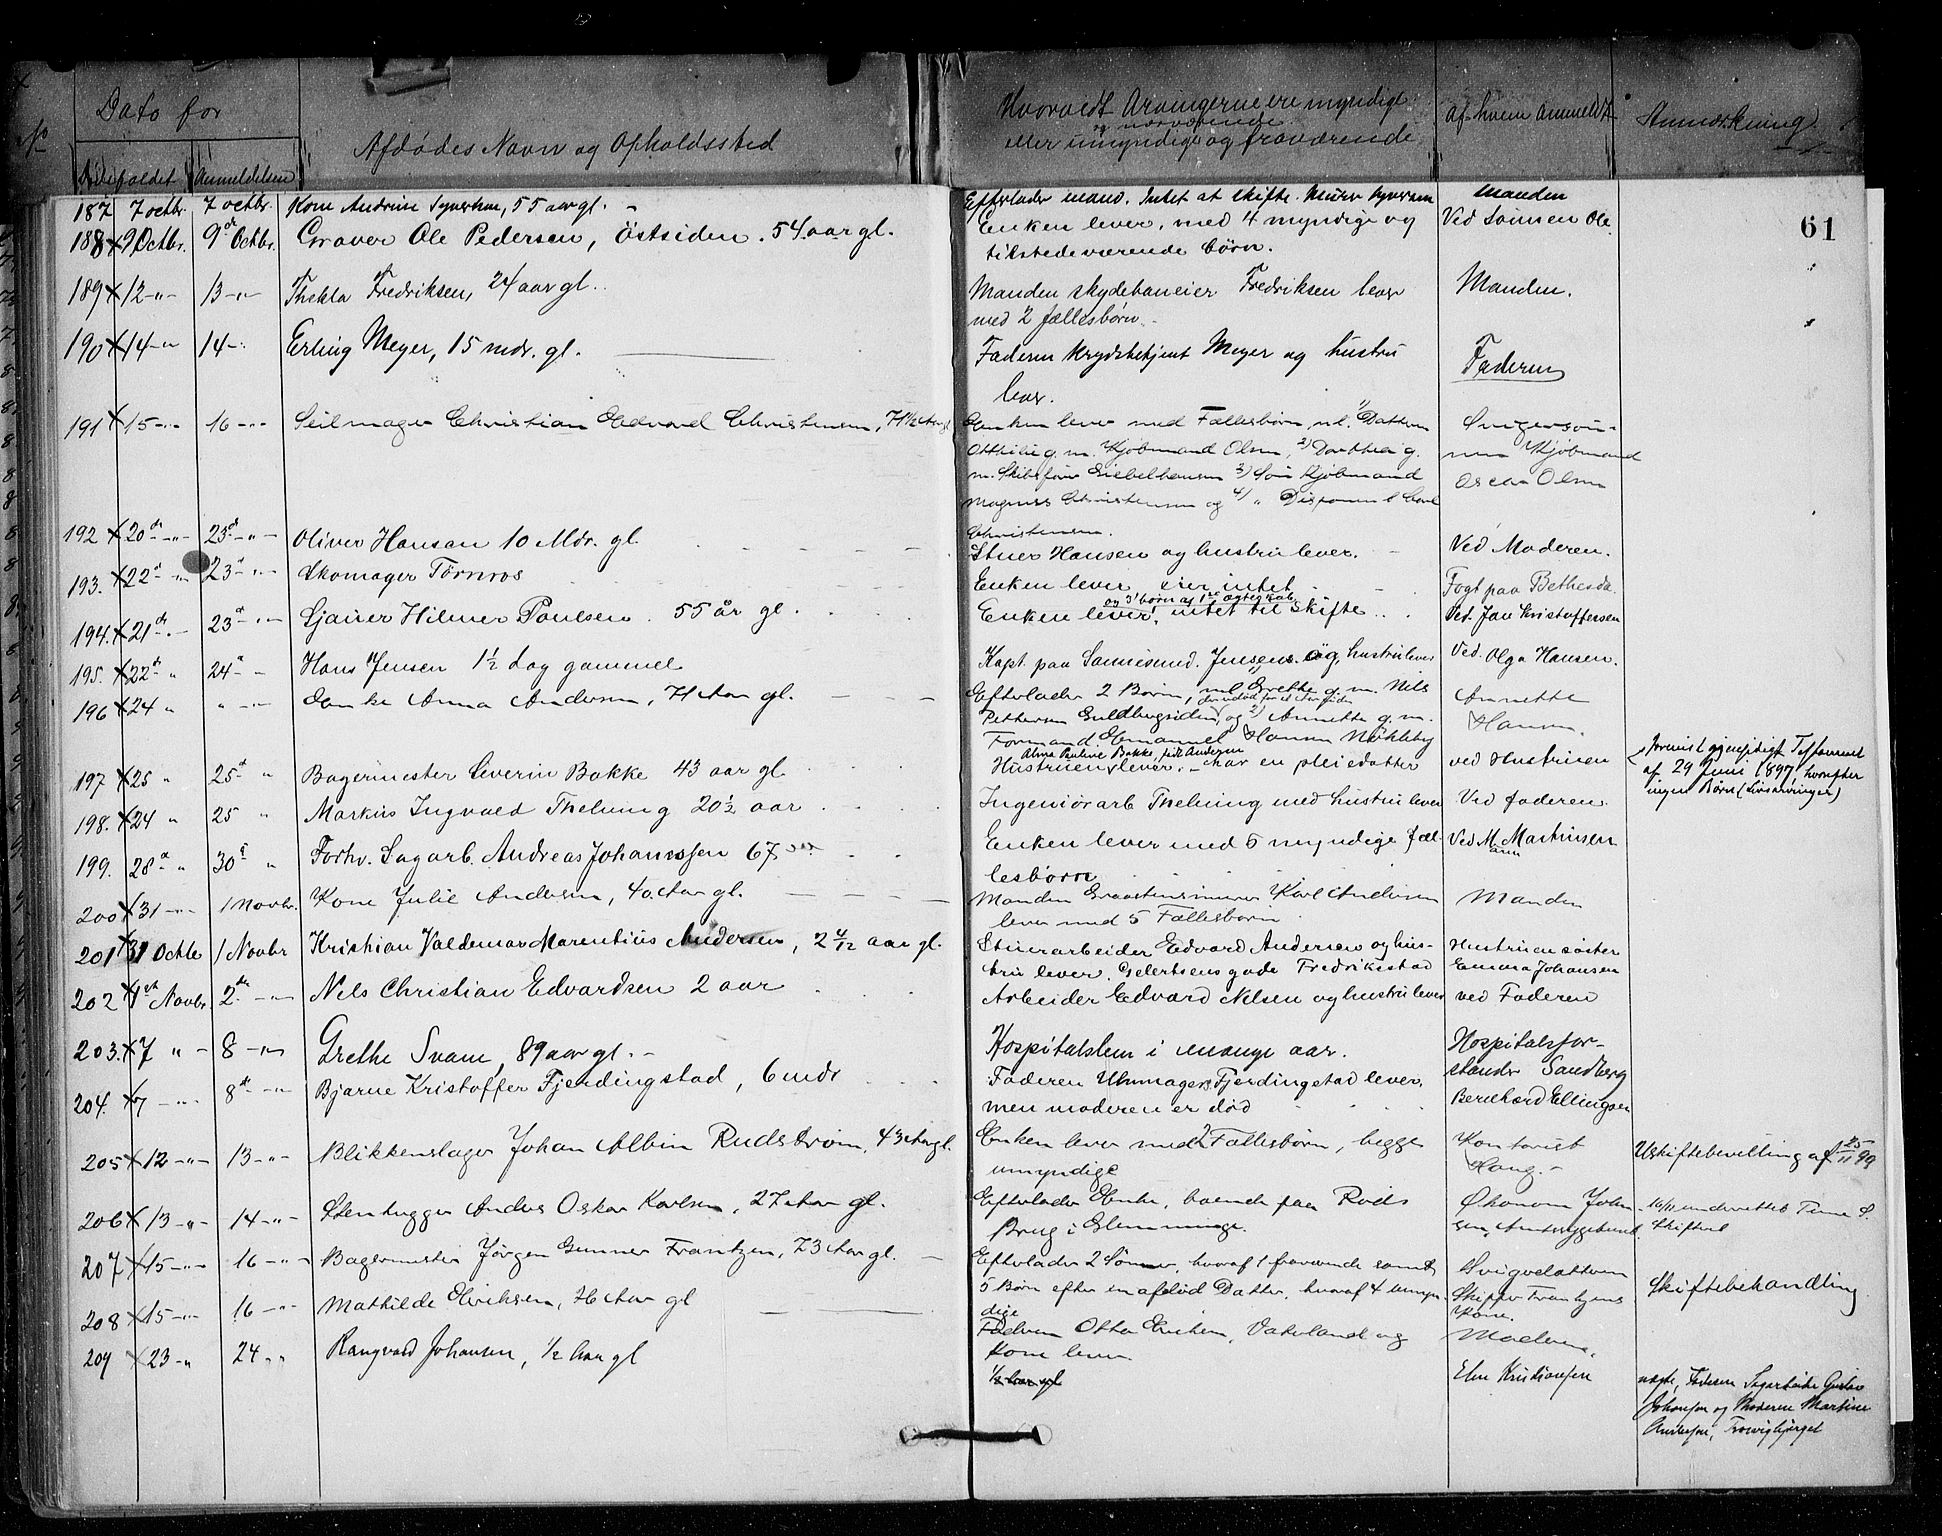 No
Dato for
Dødsfaldet
Anmeldelsen
Afdødes Navn og Opholdssted
Hvorvidt Arvingerne ere myndige
og nærværende
eller umyndige og fraværende
Af hvem anmeldt
Anmærkning
61
187 7 octbr. 7 octbr. Kone Andrine 55 aar gl. Efterlader mand. Intet at skifte. Manden
188 x 9 Octbr. 9de Octbr. Graver Ole Pedersen, Østsiden. 54 aar gl. Enken lever, med 4 myndige og Ved Sønnen Ole
tilstedeværende børn.
189 x 12 -"- 13 -"- Thekla Fredriksen, 24 aar gl. Manden skydebaneeier Fredriksen lever Manden.
med 2 fællesbørn.
190 x 14 -"- 14 -"- Erling Meyer, 15 mdr. gl. Faderen krydsbetjent Meyer og hustru Faderen
lever.
191 x 15 -"- 16 -"- Seilmager Christian Edvard Christensen, 71 1/2 Aar gl Enken lever med Fællesbørn, nl. 1) Datteren Svigersøn-
Ottilie g. m. Kjøbmand Olsen, 2) Dorthea g. nen Kjøbmand
m. Skibsfører 3) Søn Kjøbmand Oscar Olsen
Magnus Christensen og 4) " Disponent Carl
Christensen.
192 x 20de -"- 23de -"- Oliver Hansen 10 Mdr. gl. Stuer Hansen og hustru lever. Ved Moderen.
193. x 22de -"- 23de -"- Skomager Törnros Enken lever eier intet Fogt paa Bethesda.
og 3 børn af 1ste ægteskab
194. x 21de -"- 23de -"- Gjæver Hilmer Poulsen. 55 år gl. Enken lever, intet til Skifte. Ved. Jan Kristoffersen
195. x 22de " 24de " Hans Jensen 1½ dag gammel Kapt. paa Jensen og hustru lever Ved. Olga Hansen.
196 x 24 " " -"- Enke Anna Andersen, 71 Aar gl. Efterlader 2 Børn, nl. 1) Grethe g. m. Nils Annette
Pettersen og 2) Annette g. m. Hansen.
Formand Emanuel Hansen Nøkleby
Alma Pauline Bakke, født Andersen
197 x 25 " 25de " Bagermester Severin Bakke 43 aar gl. Hustruen lever. - har en pleiedatter ved Hustruen
gjensidigt Testament
af 29 Juni 1897, hvorefter
ingen Børn (Livsarvinger)
198. x 24 " 25 " Markus Ingvald Thelning 20½ aar Ingeniørarb Thelning med hustru lever Ved faderen.
199. 28de " 30te " Forhv. Sagarb. Andreas Johanssen 67 aar Enken lever med 5 myndige fæl- Ved M. Martinsen
lesbørn
200 x 31 -"- 1 Novbr. Kone Julie Andersen, 40 Aar gl. Manden Graastensmurer Karl Andersen Manden
lever med 5 Fællesbørn.
201 x 31 Octbr 1 Novbr Kristian Valdemar Marentius Andersen, 2 4/12 aar gl. Stuerarbeider Edvard Andersen og hus- Hustruens søster
tru lever. Gelertsens gade Fredrikstad Emma Johansen
202 x 1ste Novbr. 2den -"- Nils Christian Edvardsen 2 aar Arbeider Edvard Nilsen og hustru lever ved Faderen
203. x 7 " 8 -"- Grethe Svane, 89 aar gl. Hospitalslem i mange aar. Hospitalsfor-
stander Sandberg
204. x 7 -"- 8de -"- Bjarne Kristoffer Fjerdingstad, 6 mdr Faderen Uhrmager Fjerdingstad lever, Bernhard Ellingsen
men moderen er død
205 x 12 -"- 13 -"- Blikkenslager Johan Albin Rudstrøm, 43 Aar gl. Enken lever med 2 Fællesbørn, begge Kontorist Uskiftebevilling af 25/11 99
umyndige Haug.
206 x 13 -"- 14 -"- Stenhugger Anders Oskar Karlsen, 27 Aar gl. Efterlader Enke, boende paa Rods Økonom Johan- 16/11 underrettet
Brug i Glemminge. sen, Amtssygehuset. Skifteret
207 x 15 -"- 16 -"- Bagermester Jørgen Gunner Frantzen, 73 Aar gl. Efterlader 2 Sønner, hvoraf 1 fraværende samt Svigerdatteren Skiftebehandling
5 Børn efter en afdød Datter, hvoraf 4 umyn- Skipper Frantzens
dige Kone.
208 x 15 -"- 16 -"- Mathilde Eriksen, Aar gl Faderen Otto Eriksen, Vaterland og Moderen.
Kone lever.
209 x 23 -"- 24 -"- Rangvald Johansen, ½ Aar gl ½ Aar gl Elen Kristiansen
uægte, Faderen Sagarbeider Gustav
Johansen og Moderen Martine
Andersen,